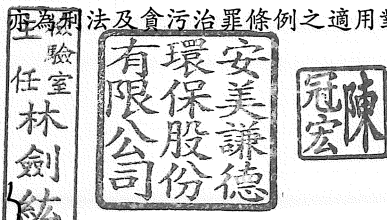 亦為刑法及貪污治罪條例之適用對
檢驗室
主任
林劍紘
安美謙德
環保股份
有限公司
陳
冠宏